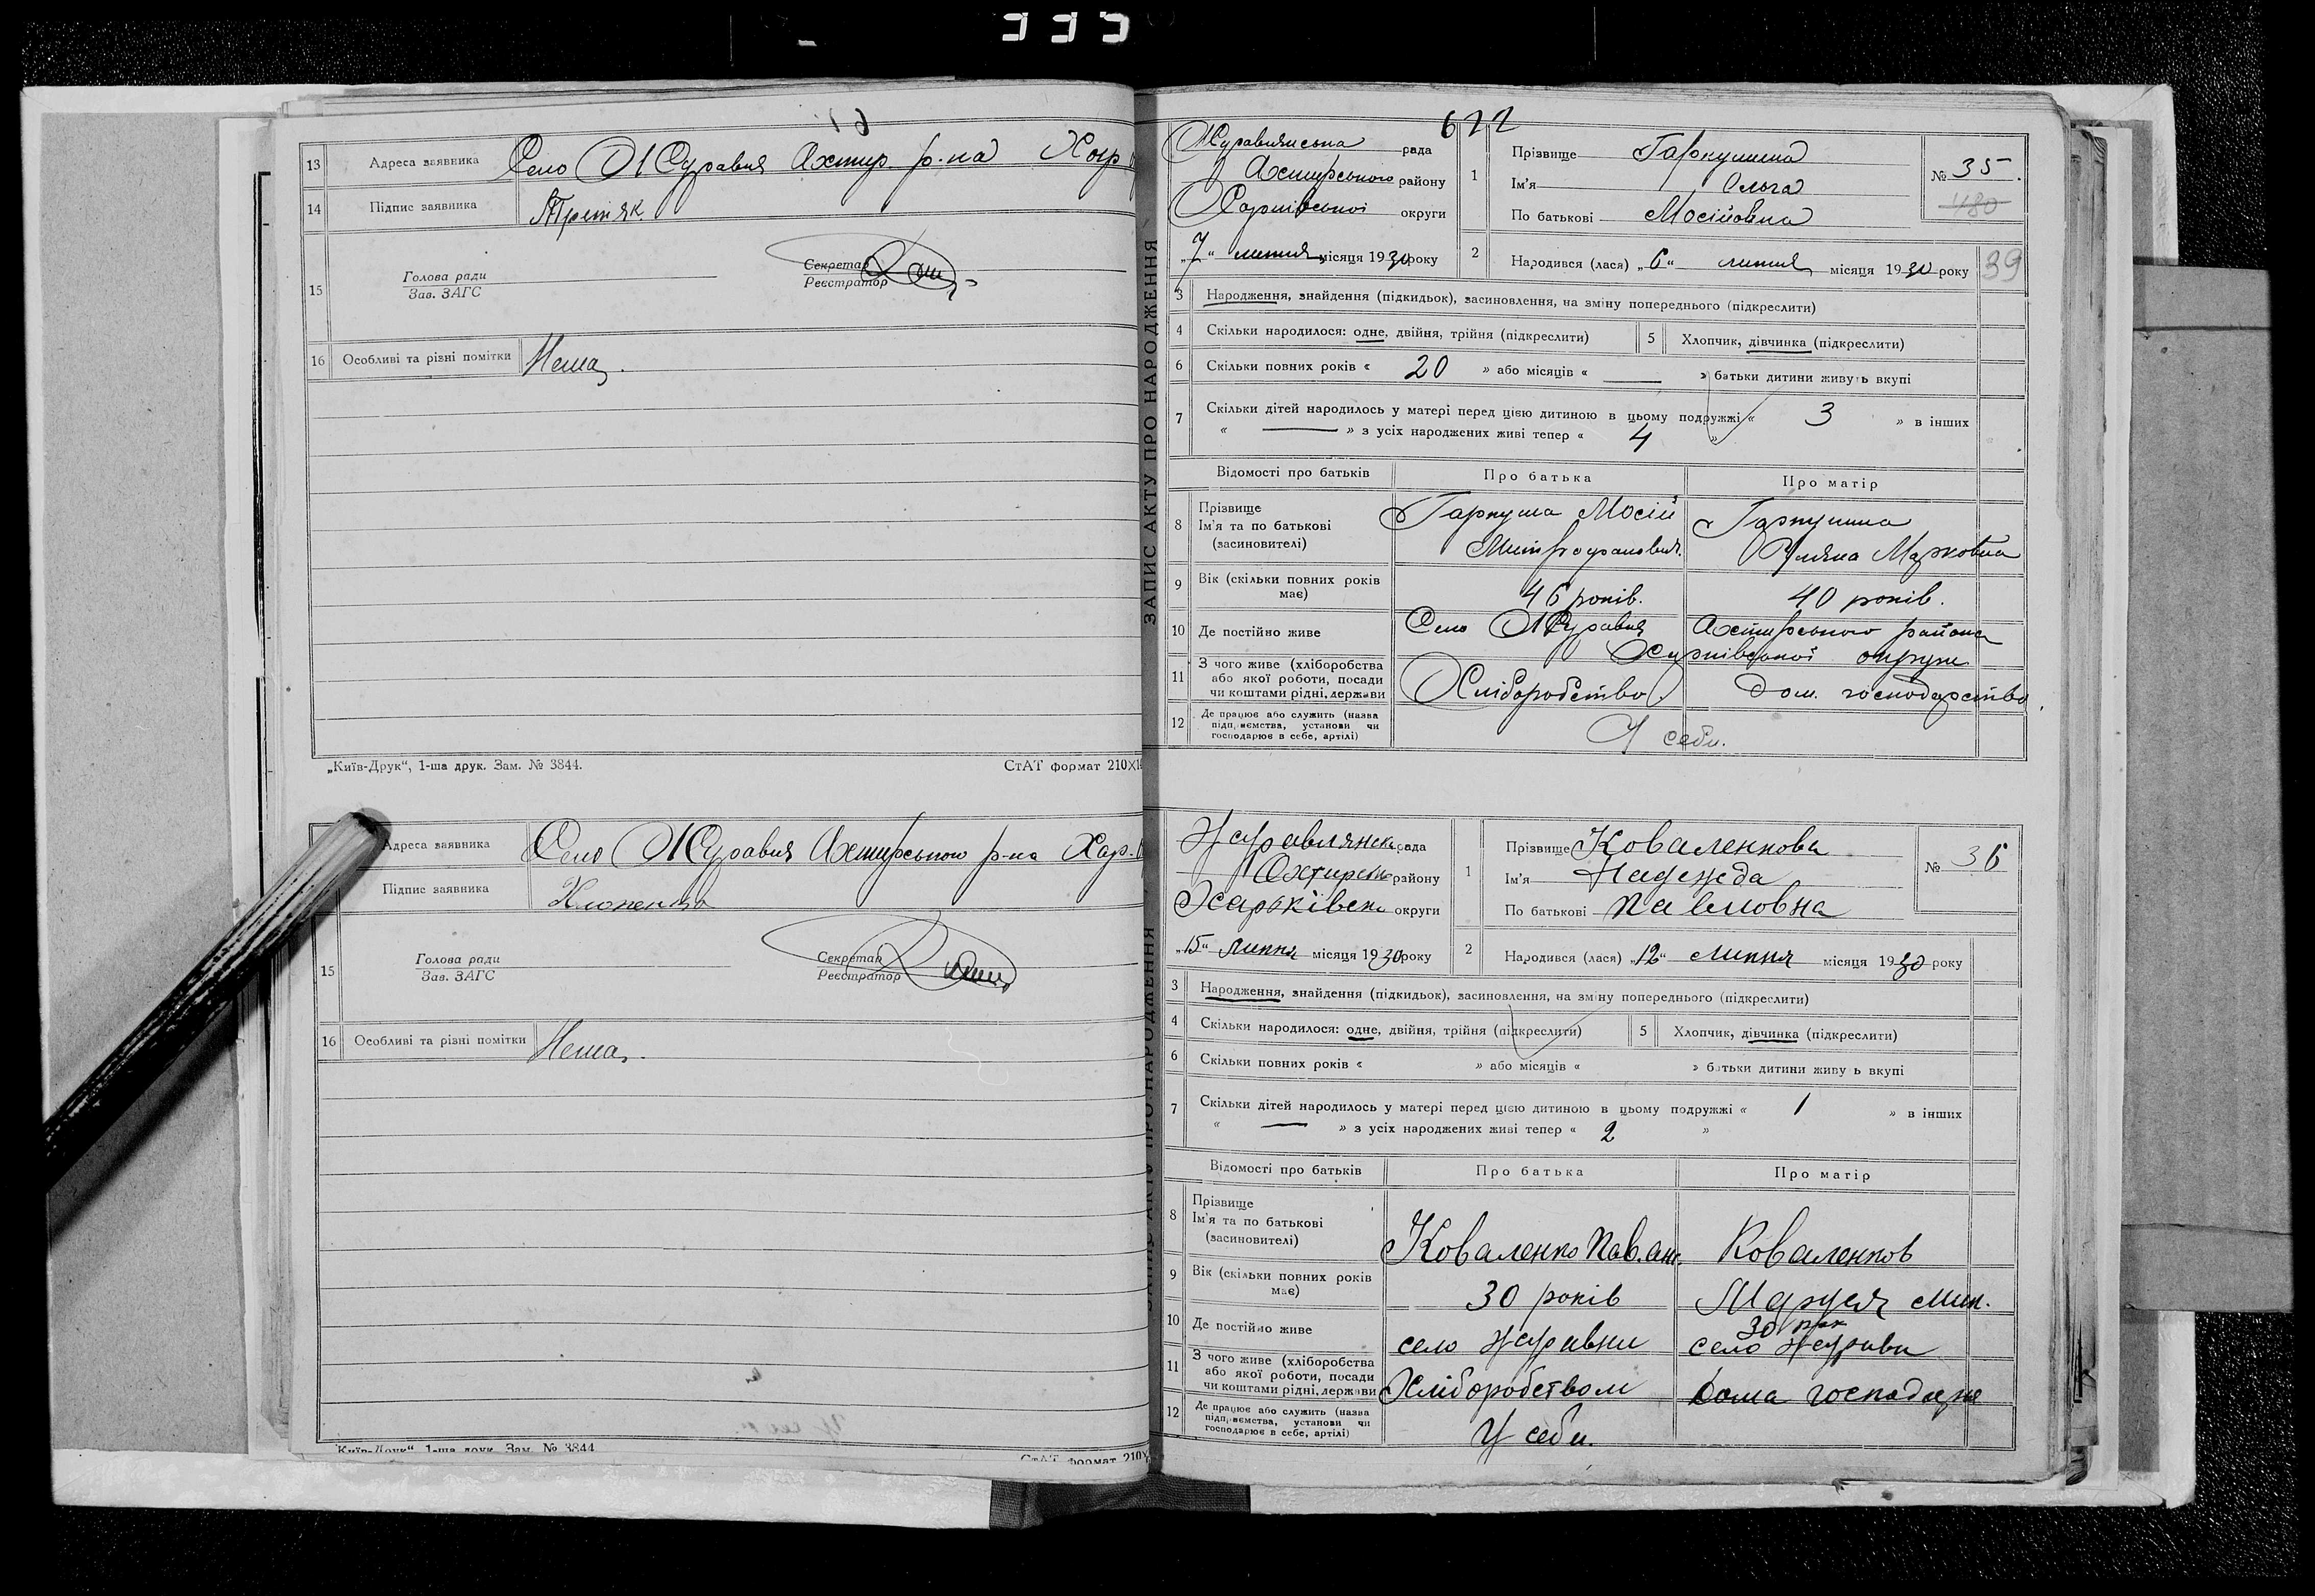 335
13 Адреса заявника Село Журавля Ахтир. р-на Хар
14 Підпис заявника Третяк
15 Голова ради
Зав. ЗАГС
Секретар
Реєстратор
16 Особливі та різні помітки Нема.
„Київ-Друк“, 1-ша друк. Зам. № 3844. СтАТ формат 210X1
Адреса заявника Село Журавля Ахтирського р-на Хар.
Підпис заявника
15 Голова ради
Зав. ЗАГС
Секретар
Реєстратор
16 Особливі та різні помітки Нема.
„Київ-Друк“, 1-ша друк. Зам. № 3844.
СтАТ формат 210X
ЗАПИС АКТУ ПРО НАРОДЖЕННЯ
622
Журавлянська рада
Ахтирського району
Харківської округи
„7“ липня місяця 1930 року
1 Прізвище Гаркушина
Ім'я Ольга
По батькові Мосійовна
№ 35.
480
2 Народився (лася) „6“ липня місяця 1930 року
39
3 Народження, знайдення (підкидьок), засиновлення, на зміну попереднього (підкреслити)
4 Скільки народилося: одне, двійня, трійня (підкреслити) 5 Хлопчик, дівчинка (підкреслити)
6 Скільки повних років « 20 » або місяців « — » батьки дитини живуть вкупі
7 Скільки дітей народилось у матері перед цією дитиною в цьому подружжі « 3 » в інших
« — » з усіх народжених живі тепер « 4 »
Відомості про батьків Про батька Про матір
8 Прізвище
Ім'я та по батькові
(засиновителі)
Гаркуша Мосій
Митрофанович.
Гаркушина
Уляна Марковна
9 Вік (скільки повних років
має)
46 років. 40 років.
10 Де постійно живе Село Журавля Ахтирського района
Харківської округи
11 З чого живе (хліборобства
або якої роботи, посади
чи коштами рідні, держави
Хліборобство. дом. господарство.
12 Де працює або служить (назва
підприємства, установи чи
господарює в себе, артілі)
У себи.
ЗАПИС АКТУ ПРО НАРОДЖЕННЯ
Журавлянска рада
Охтирсько району
Харьківско округи
„15“ липня місяця 1930 року
1 Прізвище Коваленкова
Ім'я Надежда
По батькові Павловна
№ 36
2 Народився (лася) „12“ липня місяця 1930 року
3 Народження, знайдення (підкидьок), засиновлення, на зміну попереднього (підкреслити)
4 Скільки народилося: одне, двійня, трійня (підкреслити) 5 Хлопчик, дівчинка (підкреслити)
6 Скільки повних років « » або місяців « » батьки дитини живу ь вкупі
7 Скільки дітей народилось у матері перед цією дитиною в цьому подружжі « 1 » в інших
« — » з усіх народжених живі тепер « 2 »
Відомості про батьків Про батька Про матір
8 Прізвище
Ім'я та по батькові
(засиновителі)
Коваленко Пав. Коваленков
9 Вік (скільки повних років
має)
30 років Маруся
30 рок
10 Де постійно живе село Журавни село Журави
11 З чого живе (хліборобства
або якої роботи, посади
чи коштами рідні, держави
Хліборобством дома господарня
12 Де працює або служить (назва
підприємства, установи чи
господарює в себе, артілі)
У себи.